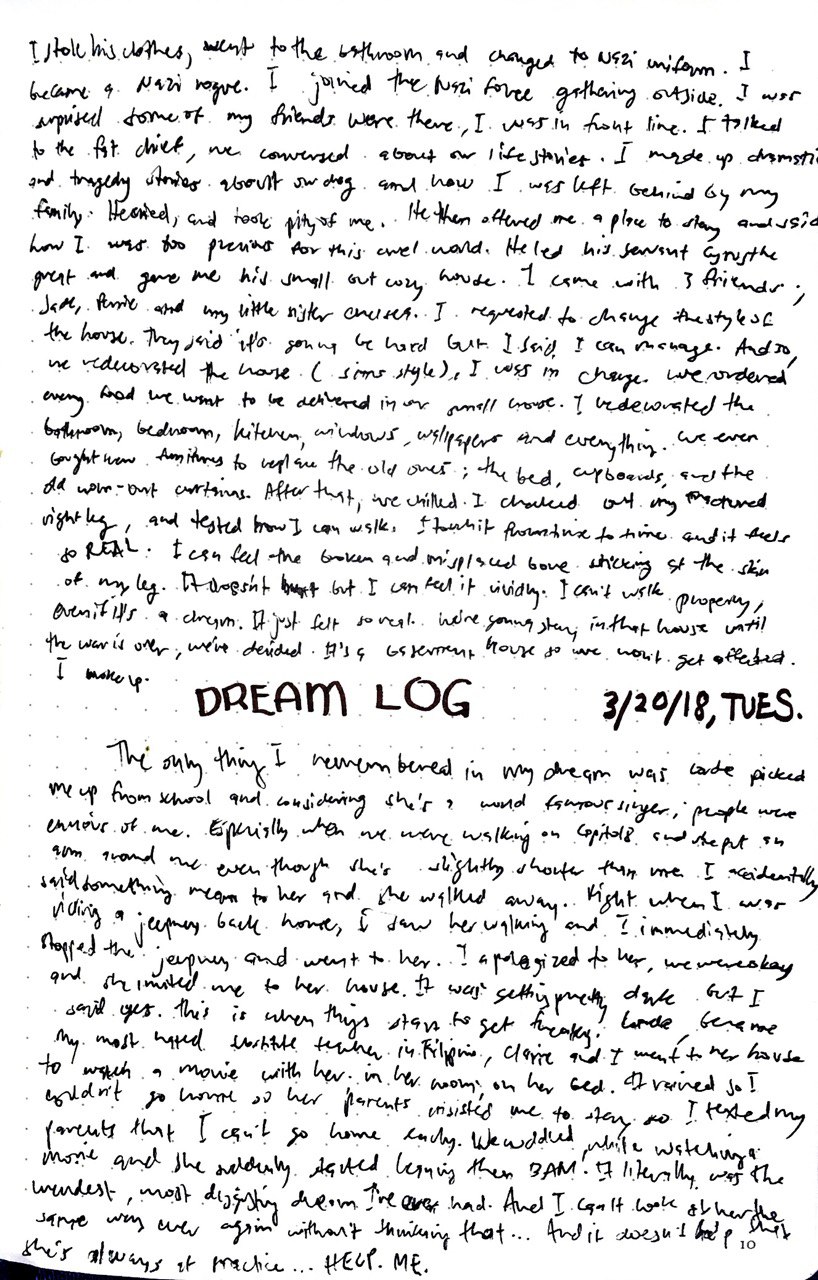 I stole his clothes, went to the bathroom and changed to Nazi uniform. I
became a Nazi rogue. I joined the Nazi force gathering outside. I was
surprised some of my friends were there, I was in front line. I talked
to the fat chief, we conversed about our life stories. I made up dramatic
and tragedy stories about our dog and how I was left behind by my
family. He cried, and took pity of me. He then offered me a place to stay and said
how I was too precious for this cruel world. He led his servant Cyrus the
great and gave me his small but cozy house. I came with 3 friends;
Jade, Perrie and my little sister Chelsea. I requested to change the style of
the house. They said it's gonna be hard but I said I can manage. And so,
we redecorated the house (sims style), I was in charge. We ordered
every food we want to be delivered in our small house. I redecorated the
bathroom, bedroom, kitchen, windows, wallpapers and everything. We even
bought new furnitures to replace the old ones; the bed, cupboards, and the
old worn-out curtains. After that, we chilled. I checked out my fractured
right leg, and tested how I can walk. I touch it from time to time and it feels
so REAL. I can feel the broken and misplaced bone sticking at the skin
of my leg. It doesn't hurt but I can feel it vividly. I can't walk properly,
even if it's a dream. It just felt so real. We're gonna stay in that house until
the war is over, we've decided. It's a basement house so we won't get affected.
I woke up.
DREAM LOG 3/20/18, TUES.
The only thing I remembered in my dream was Lorde picked
me up from school and considering she's a world famous singer, people were
envious of me. Especially when we were walking on Capitol8 and she put an
arm around me even though she's slightly shorter than me. I accidentally
said something mean to her and she walked away. Right when I was
riding a jeepney back home, I saw her walking and I immediately
stopped the jeepney and went to her. I apologized to her, we were okay
and she invited me to her house. It was getting pretty dark but I
said yes. This is when things start to get freaky. Lorde, became
my most hated substitute teacher in Filipino, Claire and I went to her house
to watch a movie with her. in her room, on her bed. It rained so I
couldn't go home so her parents insisted me to stay so I texted my
parents that I can't go home early. We cuddled, while watching a
movie and she suddenly started then BAM. It literally was the
weirdest, most disgusting dream I've ever had. And I can't look at her the
same way ever again without thinking that... And it doesn't help that
she's always at practice... HELP. ME.
10